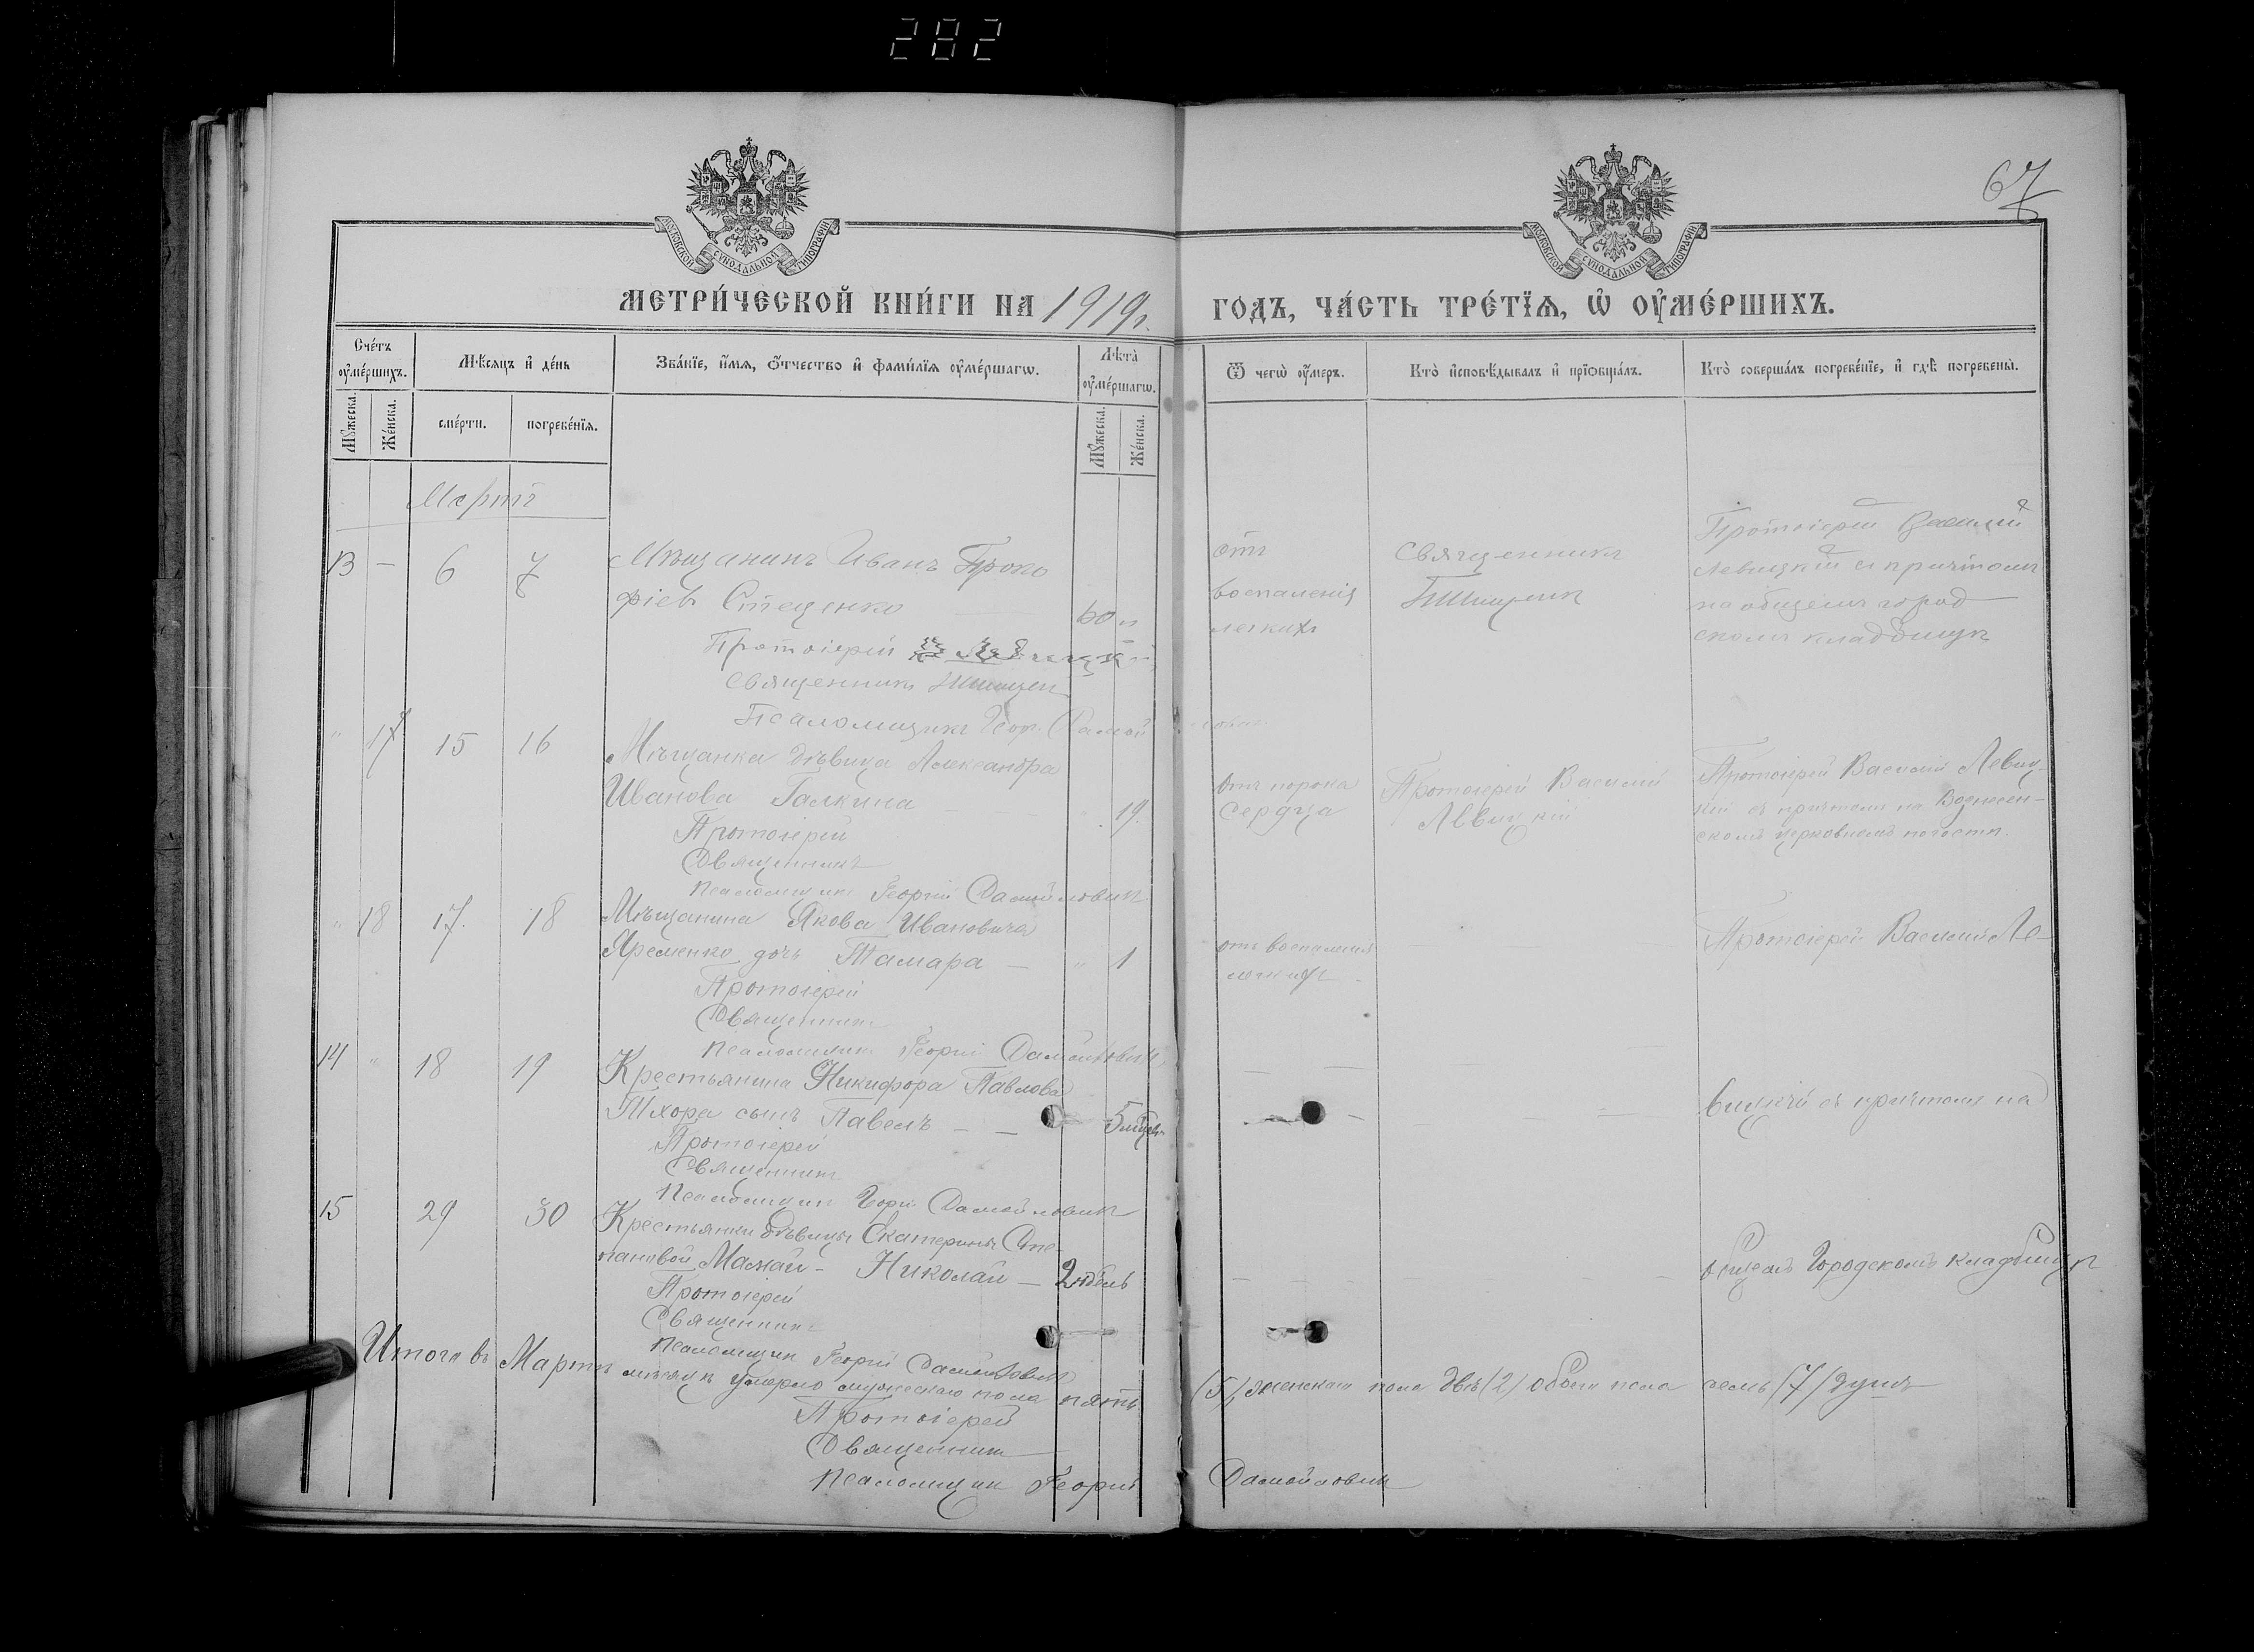 282
67
МОСКОВСКОЙ СѴНОДАЛЬНОЙ ТИПОГРАФІИ
МОСКОВСКОЙ СѴНОДАЛЬНОЙ ТИПОГРАФІИ
МЕТРИ́ЧЕСКОЙ КНИ́ГИ НА 1919г. ГОДЪ, ЧА́СТЬ ТРЕ́ТЇѦ, Ѡ҆ ОУ҆МЕ́РШИХЪ.
Сче́тъ оу҆ме́ршихъ.
Мѣ́сѧцъ и҆ де́нь
Зва́нїе, и҆́мѧ, ѻ҆́тчество и҆ фами́лїѧ оу҆ме́ршагѡ.
Лѣ́та оу҆ме́ршагѡ.
Ѿ чегѡ̀ оу҆́меръ.
Кто̀ и҆сповѣ́дывалъ и҆ прїѡбща́лъ.
Кто̀ соверша́лъ погребе́нїе, и҆ гдѣ̀ погребены̀.
Мꙋ́жеска.
Же́нска.
сме́рти.
погребе́нїѧ.
Мꙋ́жеска.
Же́нска.
Мартъ
13 — 6 7 Мѣщанинъ Иванъ Проко
фіевъ Стеценко 60 "
Протоіерей
Священникъ
Псаломщикъ Геор. Самой
отъ
воспаленія
легкихъ
Священникъ
Протоіерей Василій
Левицкій съ причтомъ
на общемъ город
скомъ кладбищѣ
" 17 15 16 Мѣщанка дѣвица Александра
Иванова Галкина — " 19.
Протоіерей
Священникъ
Псаломщикъ Георгій Самойловичъ
отъ порока
сердца
Протоіерей Василій
Левицкій
Протоіерей Василій Левиц-
кій съ причтомъ на Вознесен-
скомъ церковномъ погостѣ.
" 18 17. 18 Мѣщанина Якова Ивановича
Яременко дочь Тамара — " 1
Протоіерей
Священникъ
Псаломщикъ Георгій Самойловичъ
отъ воспаленія
легкихъ —
Протоіерей Василій Ле-
14 " 18 19 Крестьянина Никифора Павлова
Тхора сынъ Павелъ — — 5 мѣсяц.
Протоіерей
Священникъ
Псаломщикъ Геор. Самойловичъ
вицкій съ причтомъ на
15 29 30 Крестьянки дѣвицы Екатерины Сте-
пановой — Николай — 2 недѣль
Протоіерей
Священникъ
Псаломщикъ Георгій Самойловичъ
общемъ Городскомъ кладбищѣ
Итого въ Мартѣ мѣсяцѣ умерло мужескаго пола пять (5), женскаго пола двѣ (2) обоего пола семь (7) душъ
Протоіерей
Священникъ
Псаломщикъ Георгій Самойловичъ